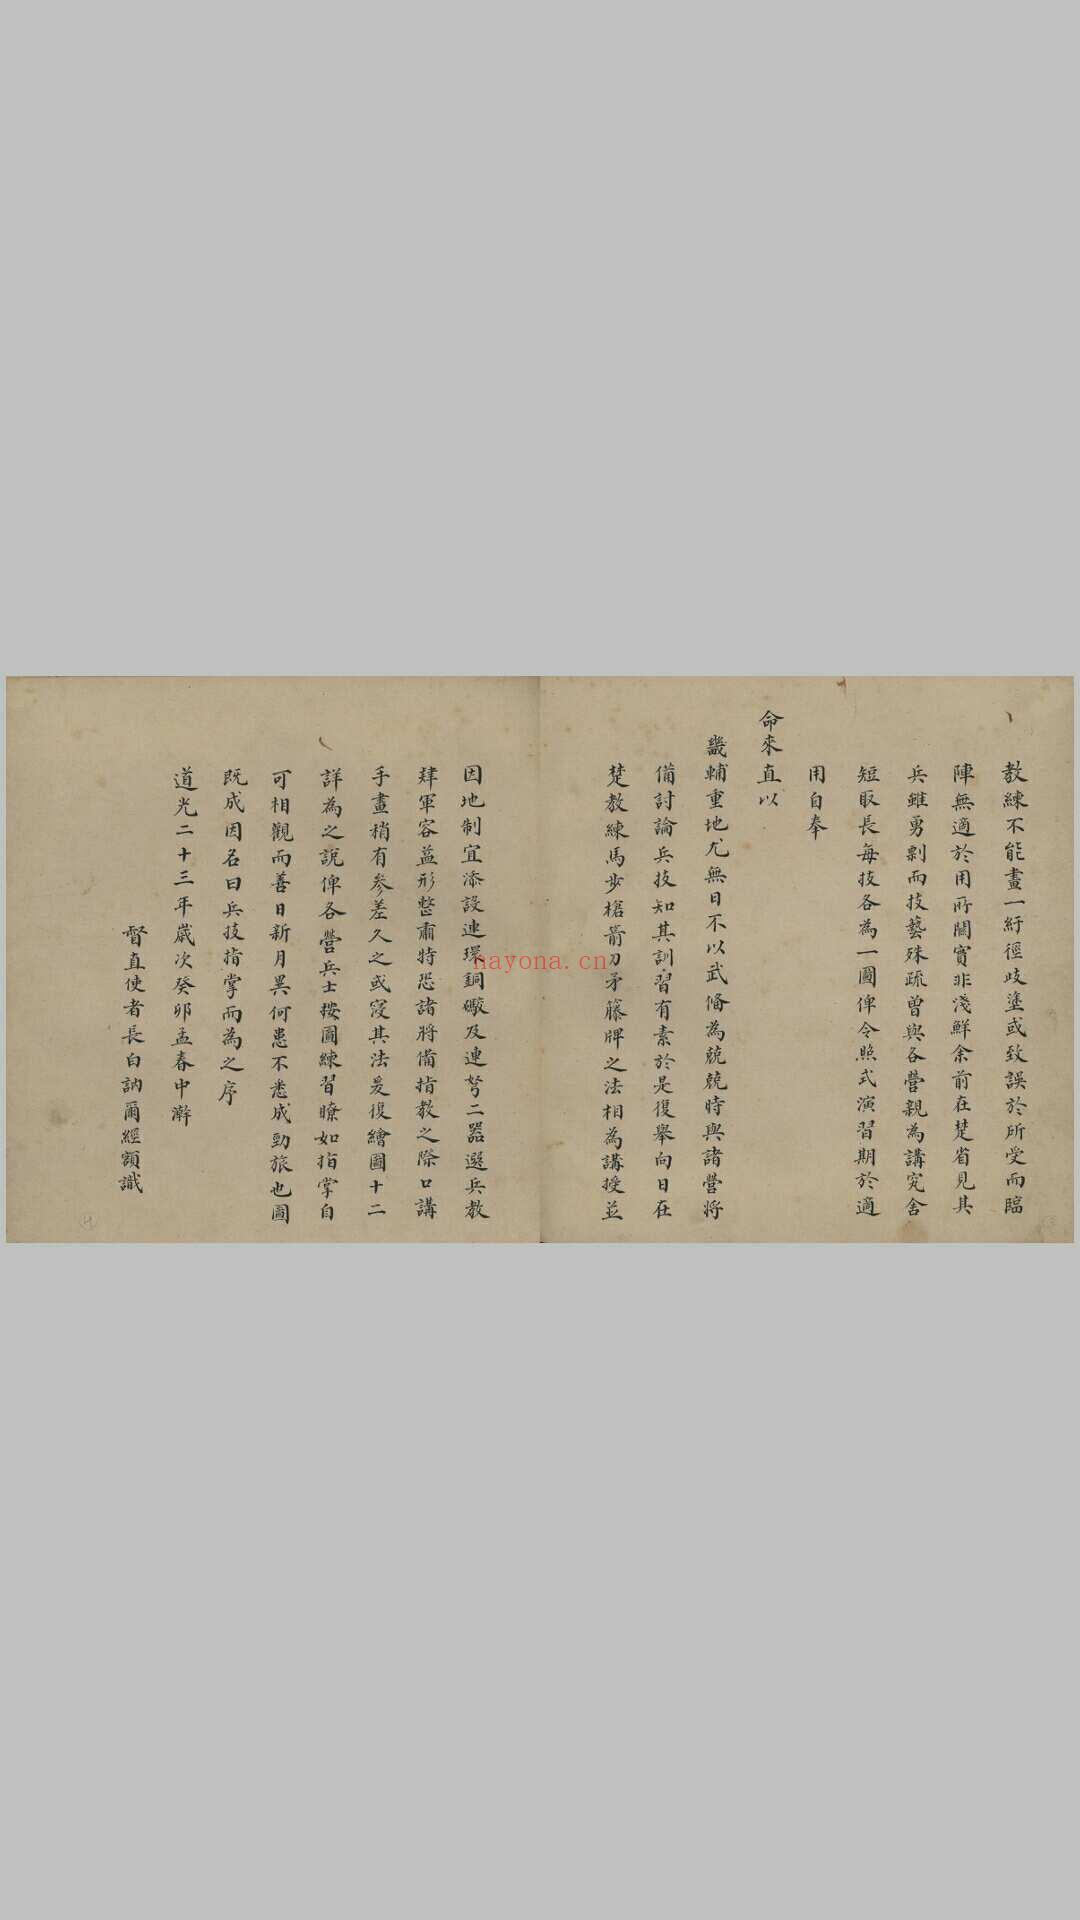 教練不能畫一紆徑歧塗或致誤於所受而臨
陣無適於用所關實非淺鮮余前在楚省見其
兵雖勇剽而技藝殊疏曾與各營親為講究舍
短取長每技各為一圖俾令照式演習期於適
用自奉
命來直以
畿輔重地尤無日不以武備為兢兢時與諸營將
備討論兵技知其訓習有素於是復舉向日在
楚教練馬步槍箭刀矛籐牌之法相為講授並
因地制宜添設連環銅礮及連弩二器選兵教
肄軍容益形整肅特恐諸將備指教之際口講
手畫稍有參差久之或寖其法爰復繪圖十二
詳為之說俾各營兵士按圖練習瞭如指掌自
可相觀而善日新月異何患不悉成勁旅也圖
既成因名曰兵技指掌而為之序
道光二十三年歲次癸卯孟春中澣
督直使者長白訥爾經額識
nayona.cn